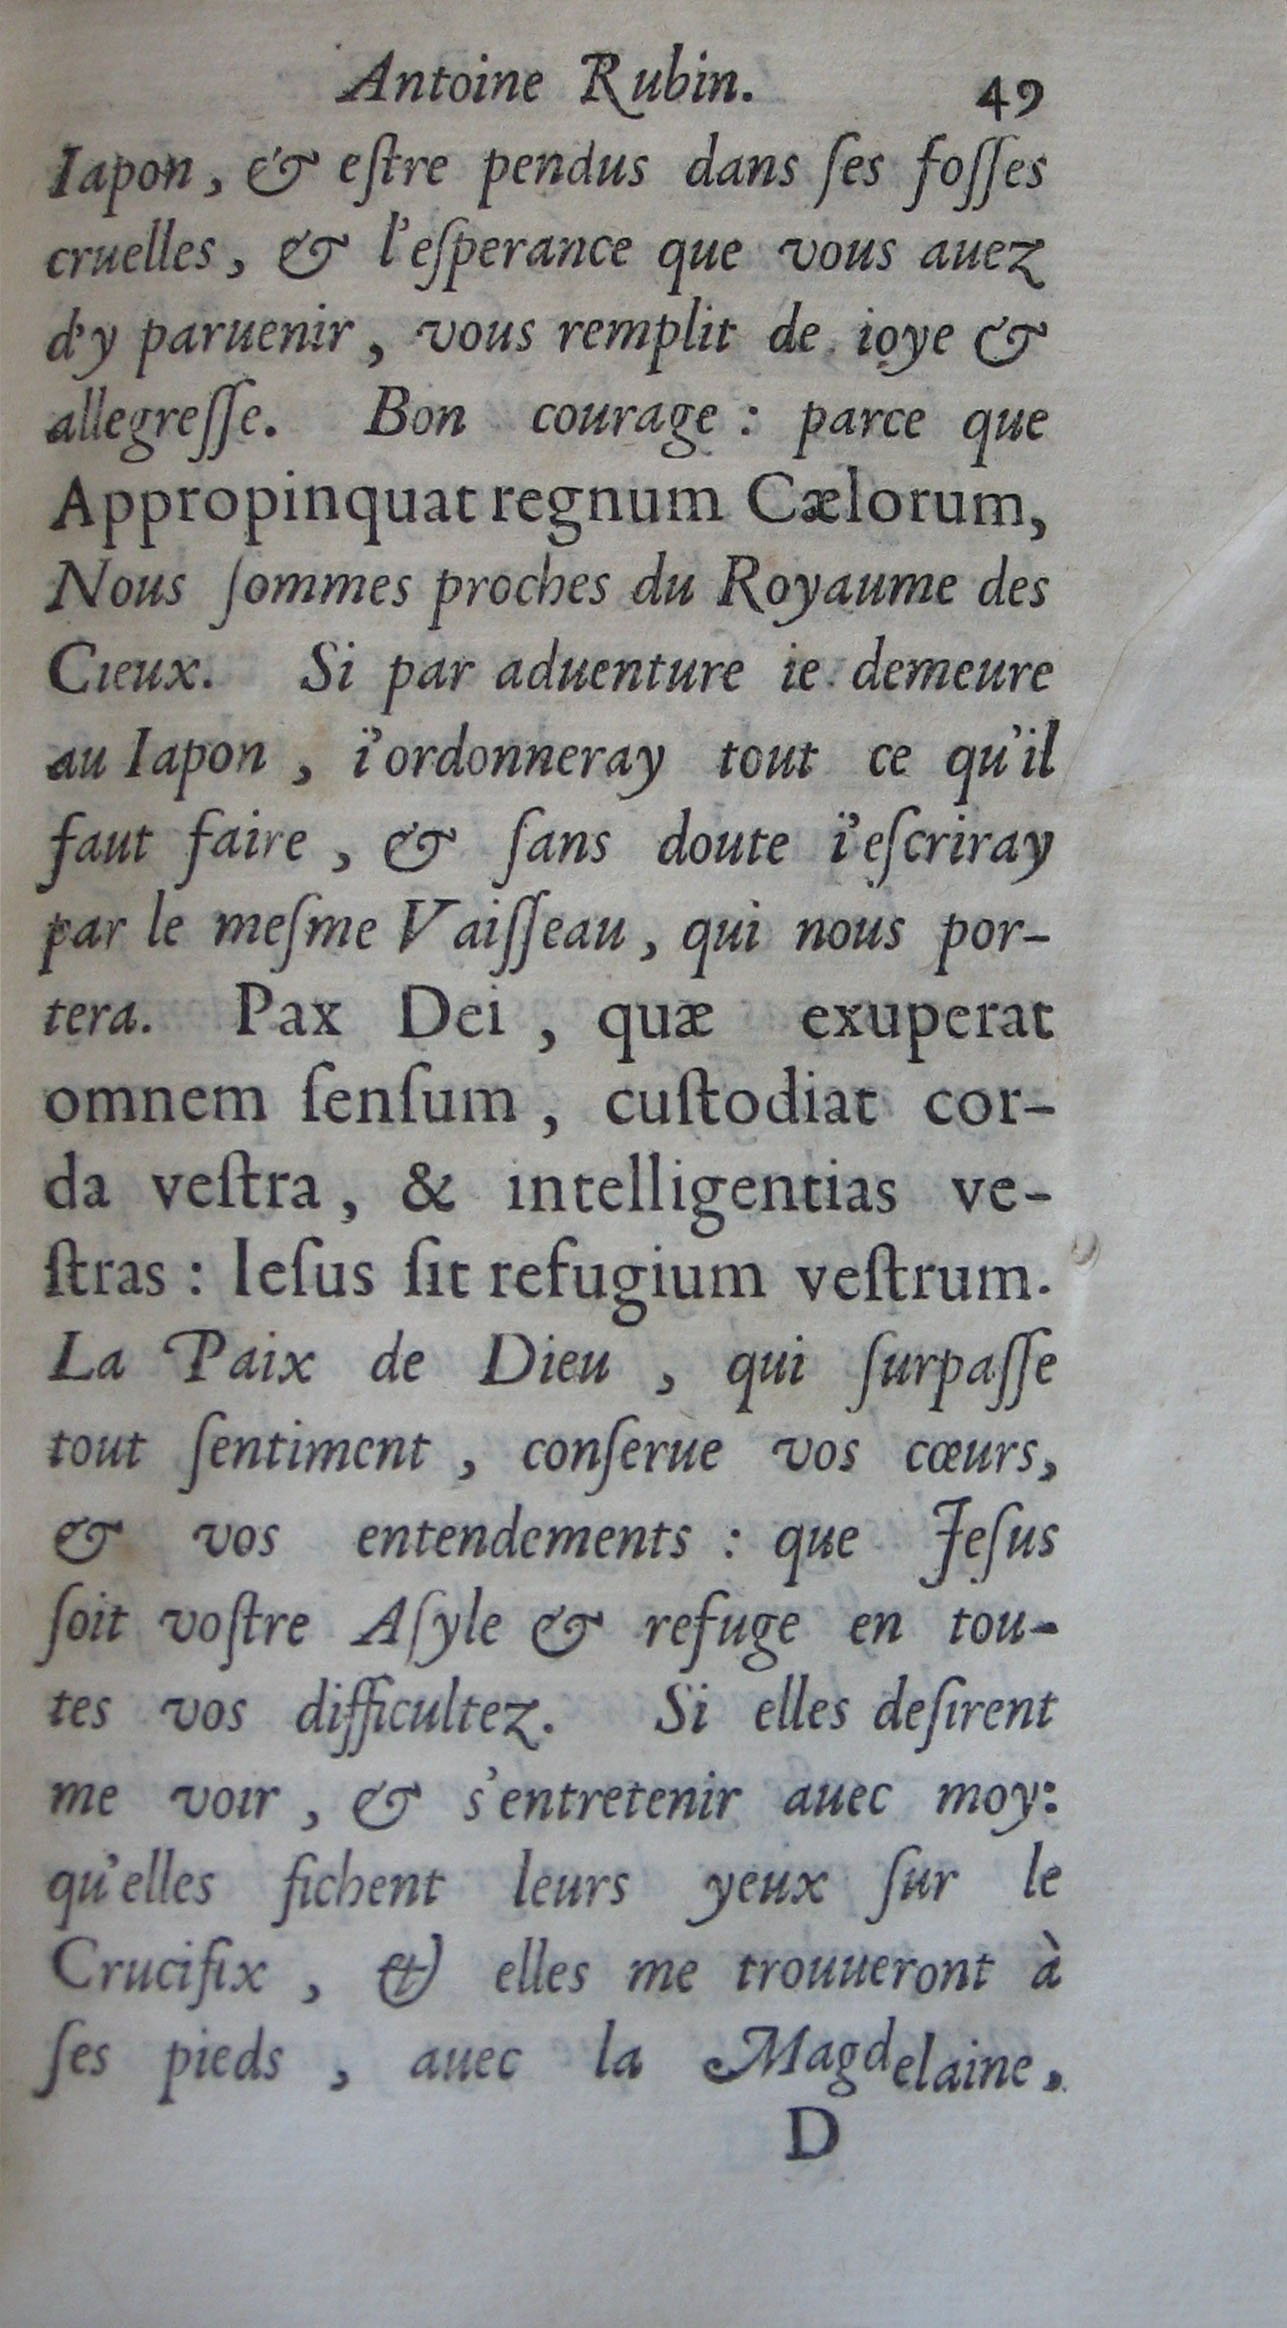 Antoine Rubin. 49
Iapon, & eſtre pendus dans ſes foſſes
cruelles, & l'eſperance que vous auez
d'y paruenir, vous remplit de ioye &
allegreſſe. Bon courage : parce que
Appropinquat regnum Cælorum,
Nous ſommes proches du Royaume des
Cieux. Si par aduenture ie demeure
au Iapon, i'ordonneray tout ce qu'il
faut faire, & ſans doute i'eſcriray
par le meſme Vaiſſeau, qui nous por-
tera. Pax Dei, quæ exuperat
omnem ſenſum, cuſtodiat cor-
da veſtra, & intelligentias ve-
ſtras : Ieſus ſit refugium veſtrum.
La Paix de Dieu, qui ſurpaſſe
tout ſentiment, conſerue vos cœurs,
& vos entendements : que Jeſus
ſoit voſtre Aſyle & refuge en tou-
tes vos difficultez. Si elles deſirent
me voir, & s'entretenir auec moy:
qu'elles fichent leurs yeux ſur le
Crucifix, & elles me trouueront à
ſes pieds, auec la Magdelaine,
D